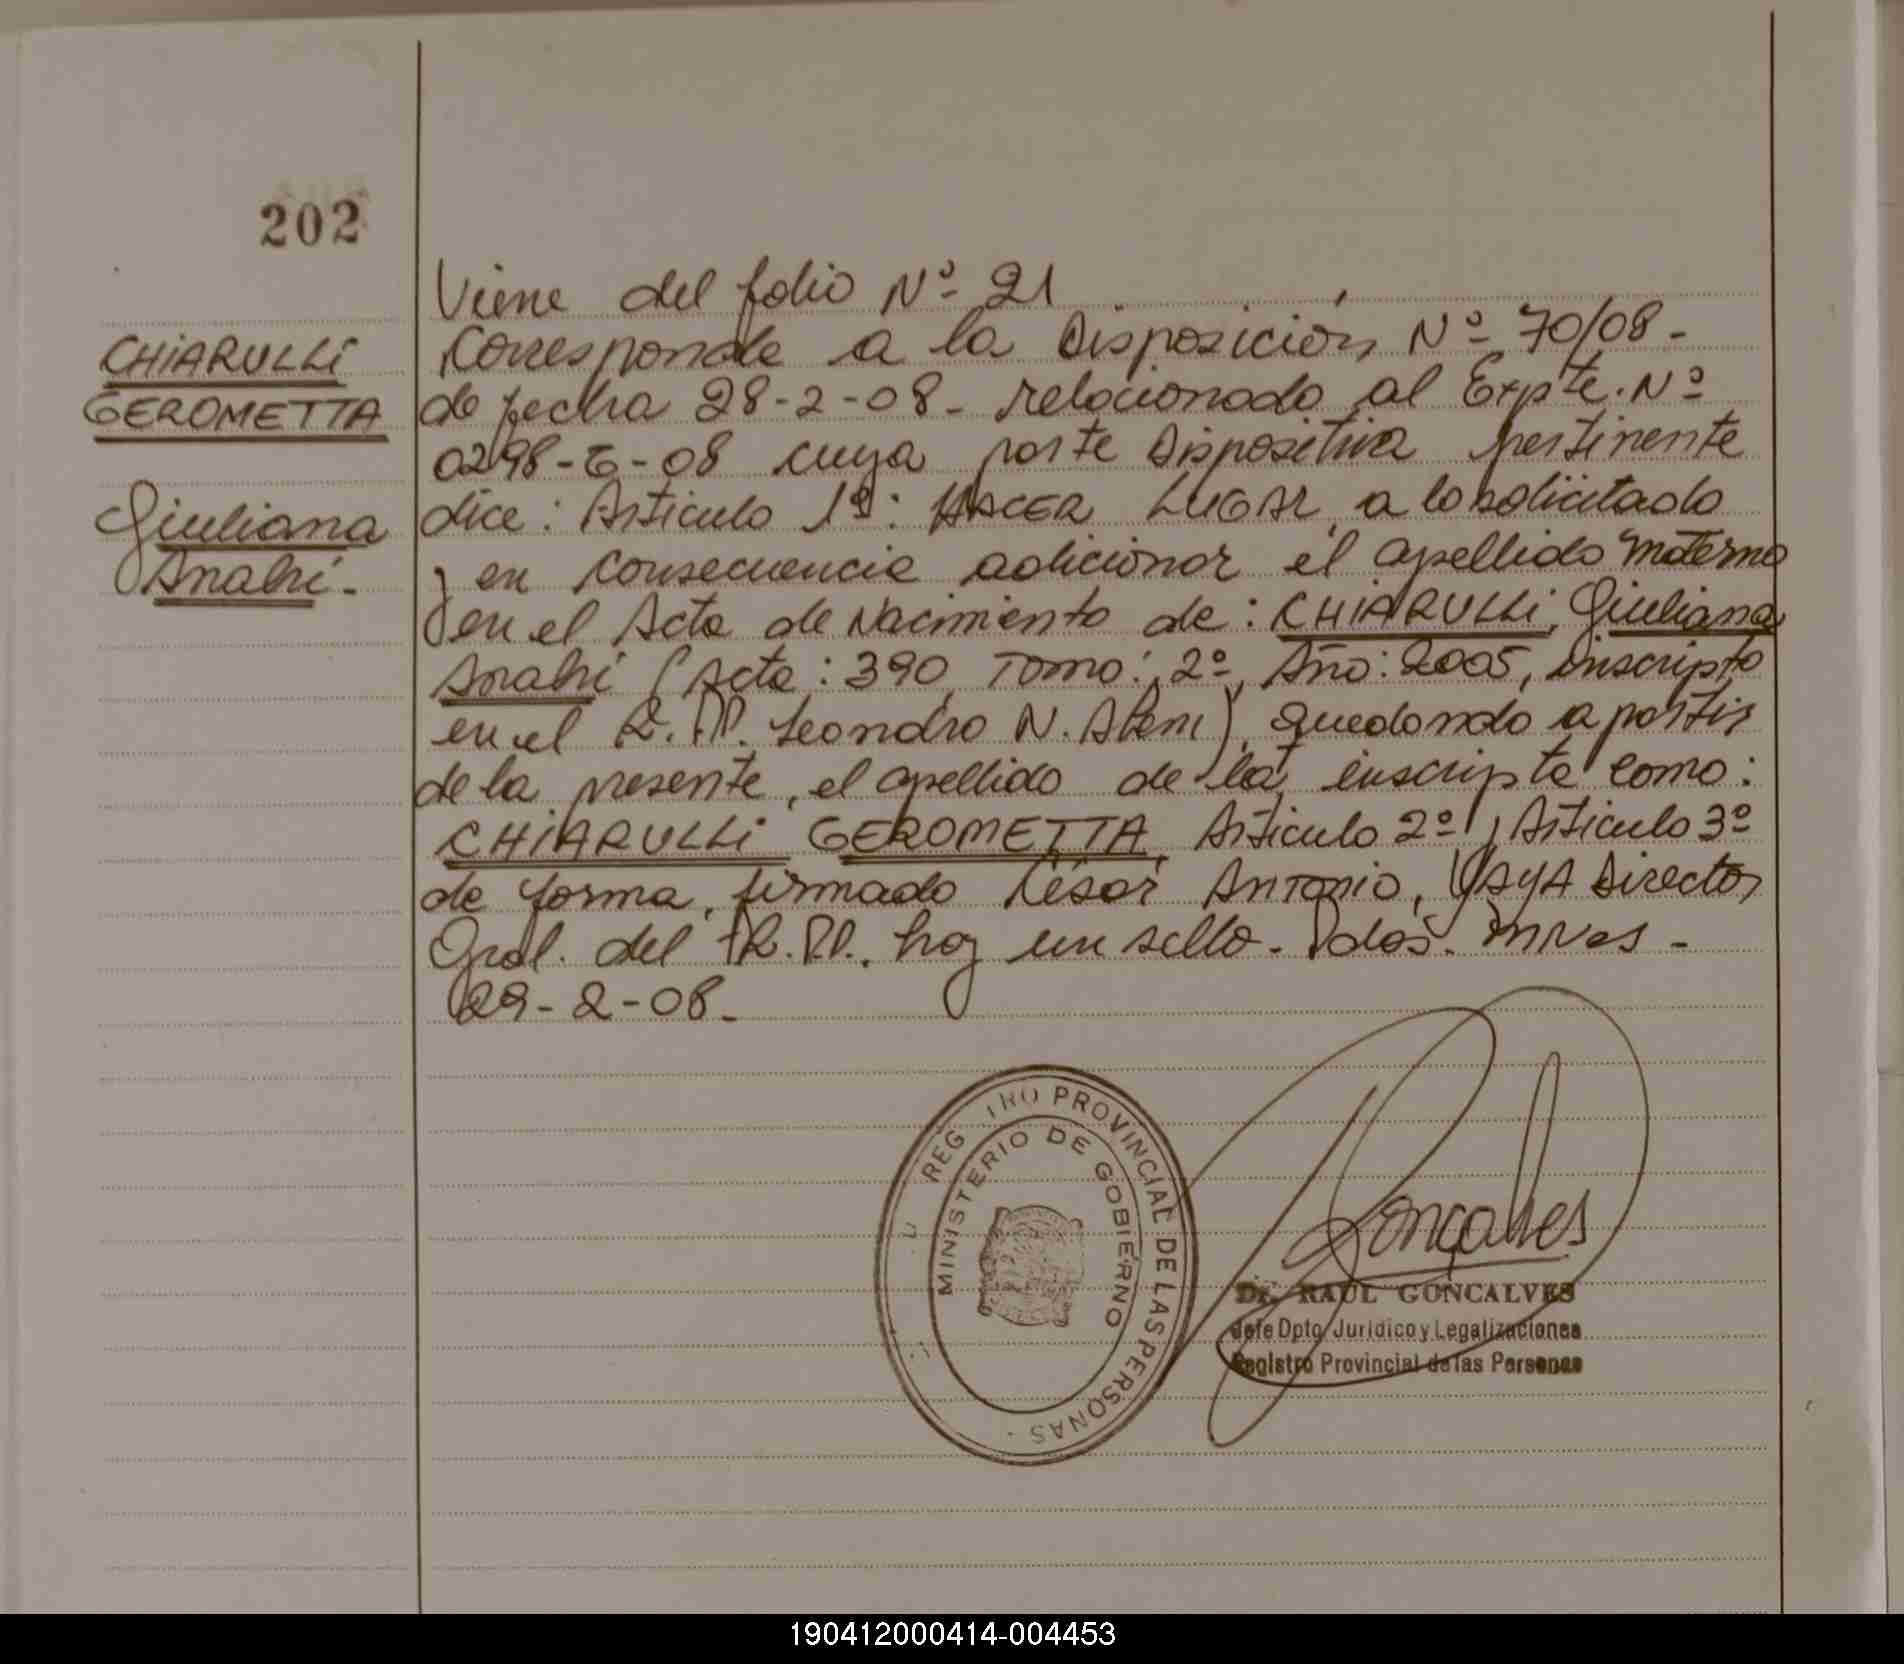 202
CHIARULLI
GEROMETTA
Giuliana
Anahí.-
Viene del folio Nº 21
Corresponde a la Disposición Nº 70/08-
de fecha 28-2-08- relacionado al Expte. Nº
0298-G-08 cuya parte Dispositiva pertinente
dice: Artículo 1º: HACER LUGAR a lo solicitado
y en consecuencia adicionar el apellido materno
en el Acta de Nacimiento de: CHIARULLI, Giuliana
Anahí (Acta: 390, Tomo: 2º, Año: 2005, inscripto
en el R.PP. Leandro N. Alem), quedando a partir
de la presente, el apellido de la inscripta como:
CHIARULLI GEROMETTA, Artículo 2º, Artículo 3º
de forma, firmado César Antonio, VAYA Director
Gral. del R.PP. hay un sello- Pdas. Mnes-
29-2-08-
REG TRO PROVINCIAL DE LAS PERSONAS
MINISTERIO DE GOBIERNO
Gonçalves
Dr. RAUL GONCALVES
Jefe Dpto Jurídico y Legalizaciones
Registro Provincial de las Personas
190412000414-004453